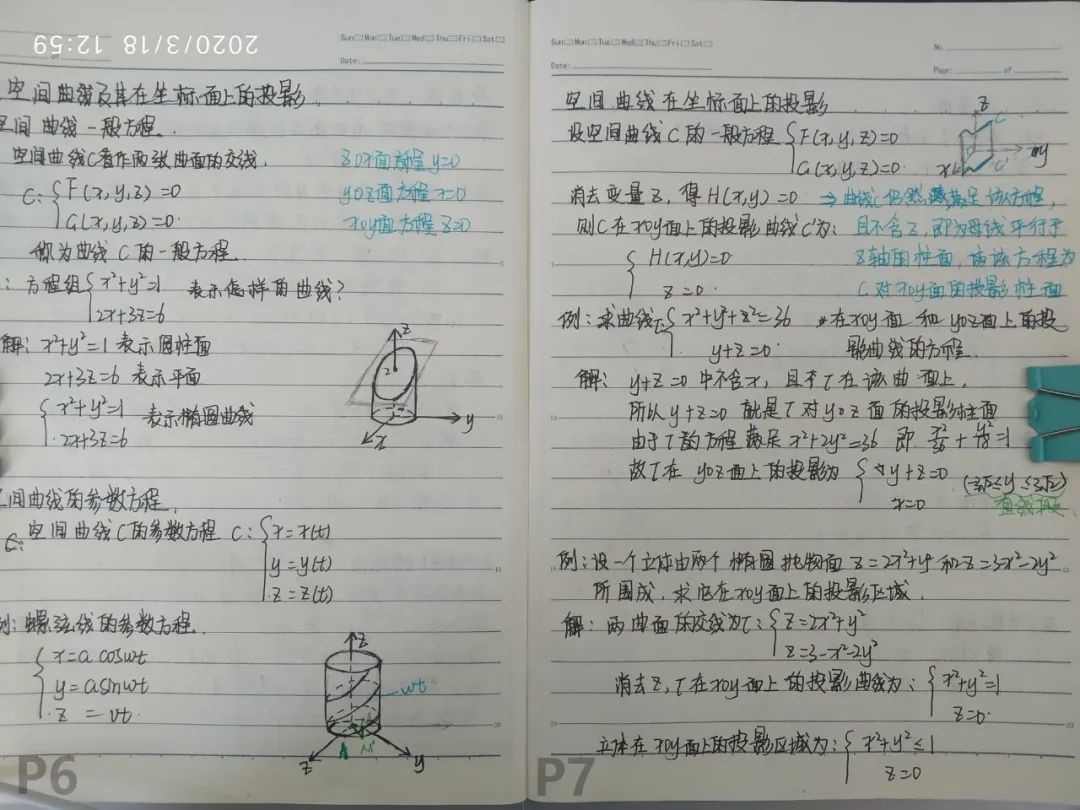 2020/3/18 12:59
Sun Mon Tue Wed Thu Fri Sat
Date:
of
空间曲线及其在坐标面上的投影
空间曲线一般方程.
空间曲线C看作两张曲面的交线.
zox面方程y=0
C: {F(x,y,z)=0
yoz面方程x=0
G(x,y,z)=0.
xoy面方程z=0
称为曲线C的一般方程.
: 方程组{x²+y²=1 表示怎样的曲线?
2x+3z=6
解: x²+y²=1 表示圆柱面
2x+3z=6 表示平面
{x²+y²=1 表示椭圆曲线
2x+3z=6
z
y
x
间曲线的参数方程.
空间曲线C的参数方程 C: {x=x(t)
y=y(t)
z=z(t)
例: 螺旋线的参数方程.
{x=a cosωt
y=a sinωt
z=vt.
z
ωt
A
M'
y
P6
Sun Mon Tue Wed Thu Fri Sat
No.
Date:
Page: of
空间曲线在坐标面上的投影
设空间曲线C的一般方程{F(x,y,z)=0
G(x,y,z)=0.
z
C
C'
y
x
消去变量z, 得H(x,y)=0 ⇒ 曲线C仍然满足该方程,
则C在xoy面上的投影曲线C'为: 且不含z, 即为母线平行于
{H(x,y)=0 z轴的柱面, 该方程为
z=0. C对xoy面的投影柱面
例: 求曲线Γ{x²+y²+z²=36 在xoy面和yoz面上的投
y+z=0. 影曲线的方程.
解: y+z=0中不含x, 且Γ在该曲面上,
所以y+z=0就是Γ对yoz面的投影柱面
由于Γ的方程满足x²+2y²=36 即 x²/36+y²/18=1
故Γ在yoz面上的投影为{y+z=0 (-3√2≤y≤3√2)
x=0 直线段.
例: 设一个立体由两个椭圆抛物面z=2x²+y²和z=3-x²-2y²
所围成, 求它在xoy面上的投影区域.
解: 两曲面的交线为Γ: {z=2x²+y²
z=3-x²-2y²
消去z, Γ在xoy面上的投影曲线为: {x²+y²=1
z=0.
立体在xoy面上的投影区域为: {x²+y²≤1
z=0
P7